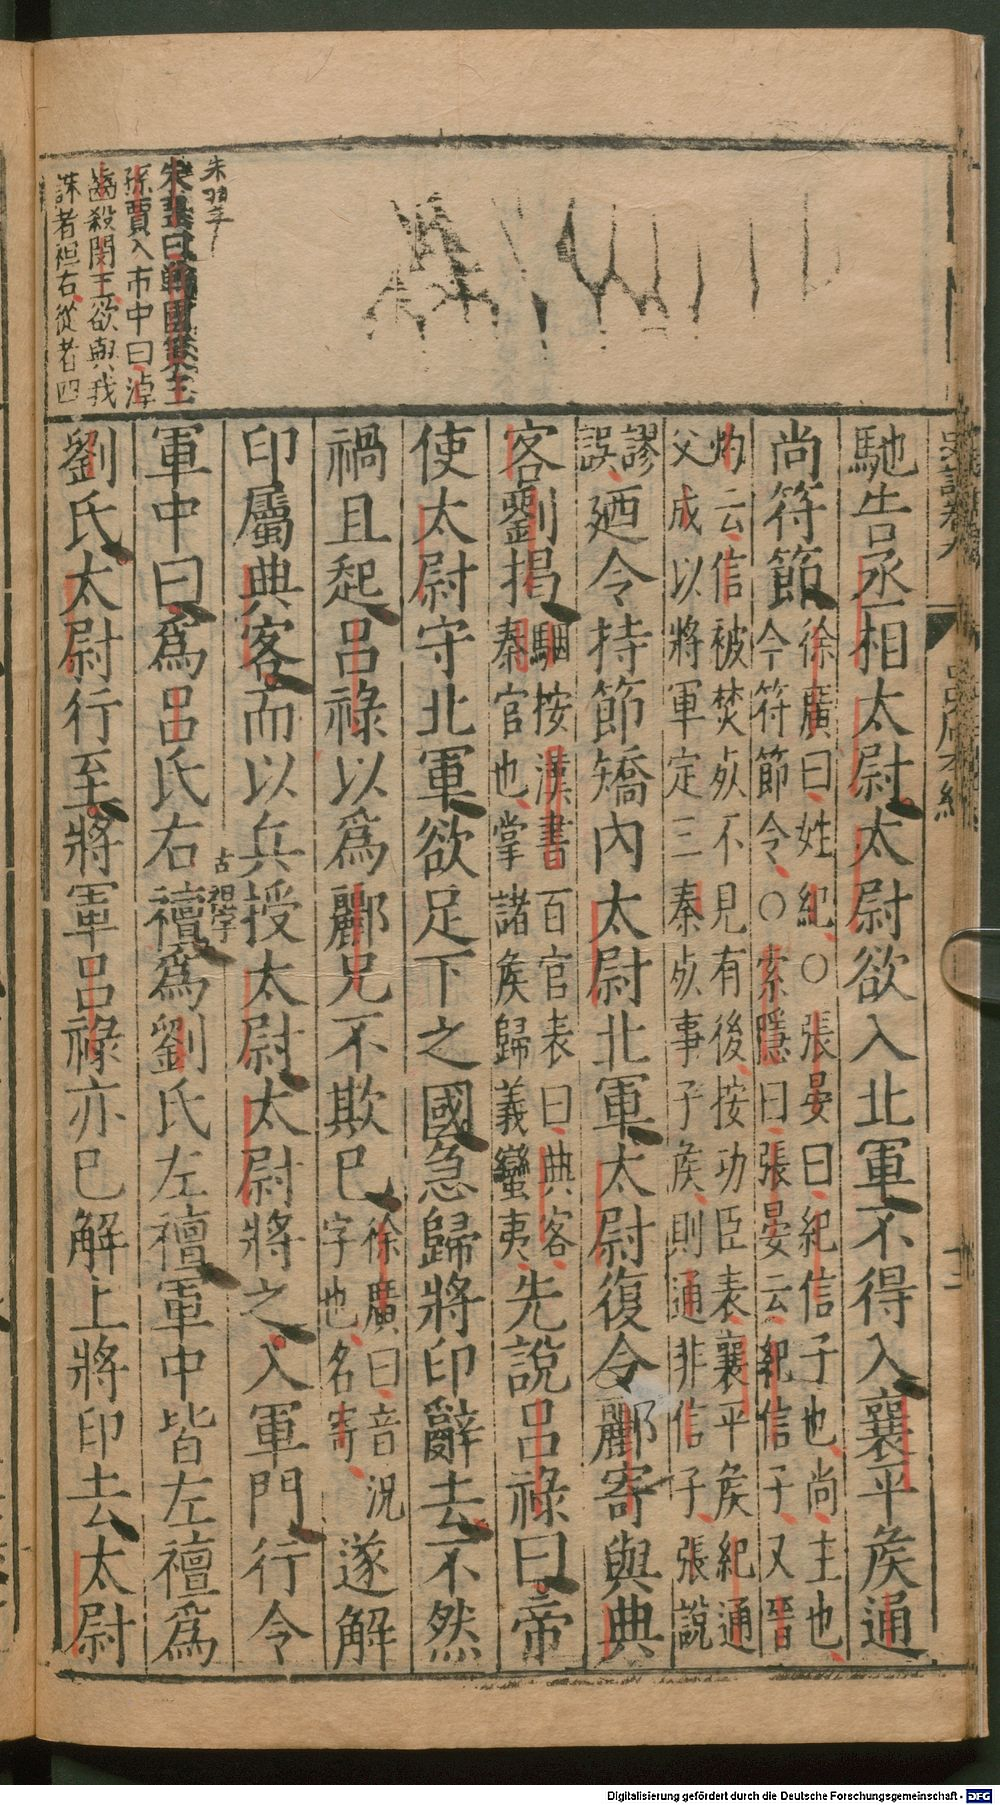 馳告丞相太尉太尉欲入北軍不得入襄平矦通
尚符節徐廣曰姓紀○張晏曰紀信子也尚主也
今符節令○索隱曰張晏云紀信子又晉
灼云信被焚死不見有後按功臣表襄平矦紀通
父成以將軍定三秦死事子矦則通非信子張說
謬
誤廼令持節矯內太尉北軍太尉復令酈寄與典
客劉揭駰按漢書百官表曰典客
秦官也掌諸矦歸義蠻夷先說呂祿曰帝
使太尉守北軍欲足下之國急歸將印辭去不然
禍且起呂祿以爲酈兄不欺巳徐廣曰音況
字也名寄遂解
印屬典客而以兵授太尉太尉將之入軍門行令
軍中曰爲呂氏右襢爲劉氏左襢軍中皆左襢爲
古袒字
劉氏太尉行至將軍呂祿亦已解上將印去太尉
朱翌
孫賈入市中曰淖
齒殺閔王欲與我
誅者袒右從者四
Digitalisierung gefördert durch die Deutsche Forschungsgemeinschaft - DFG